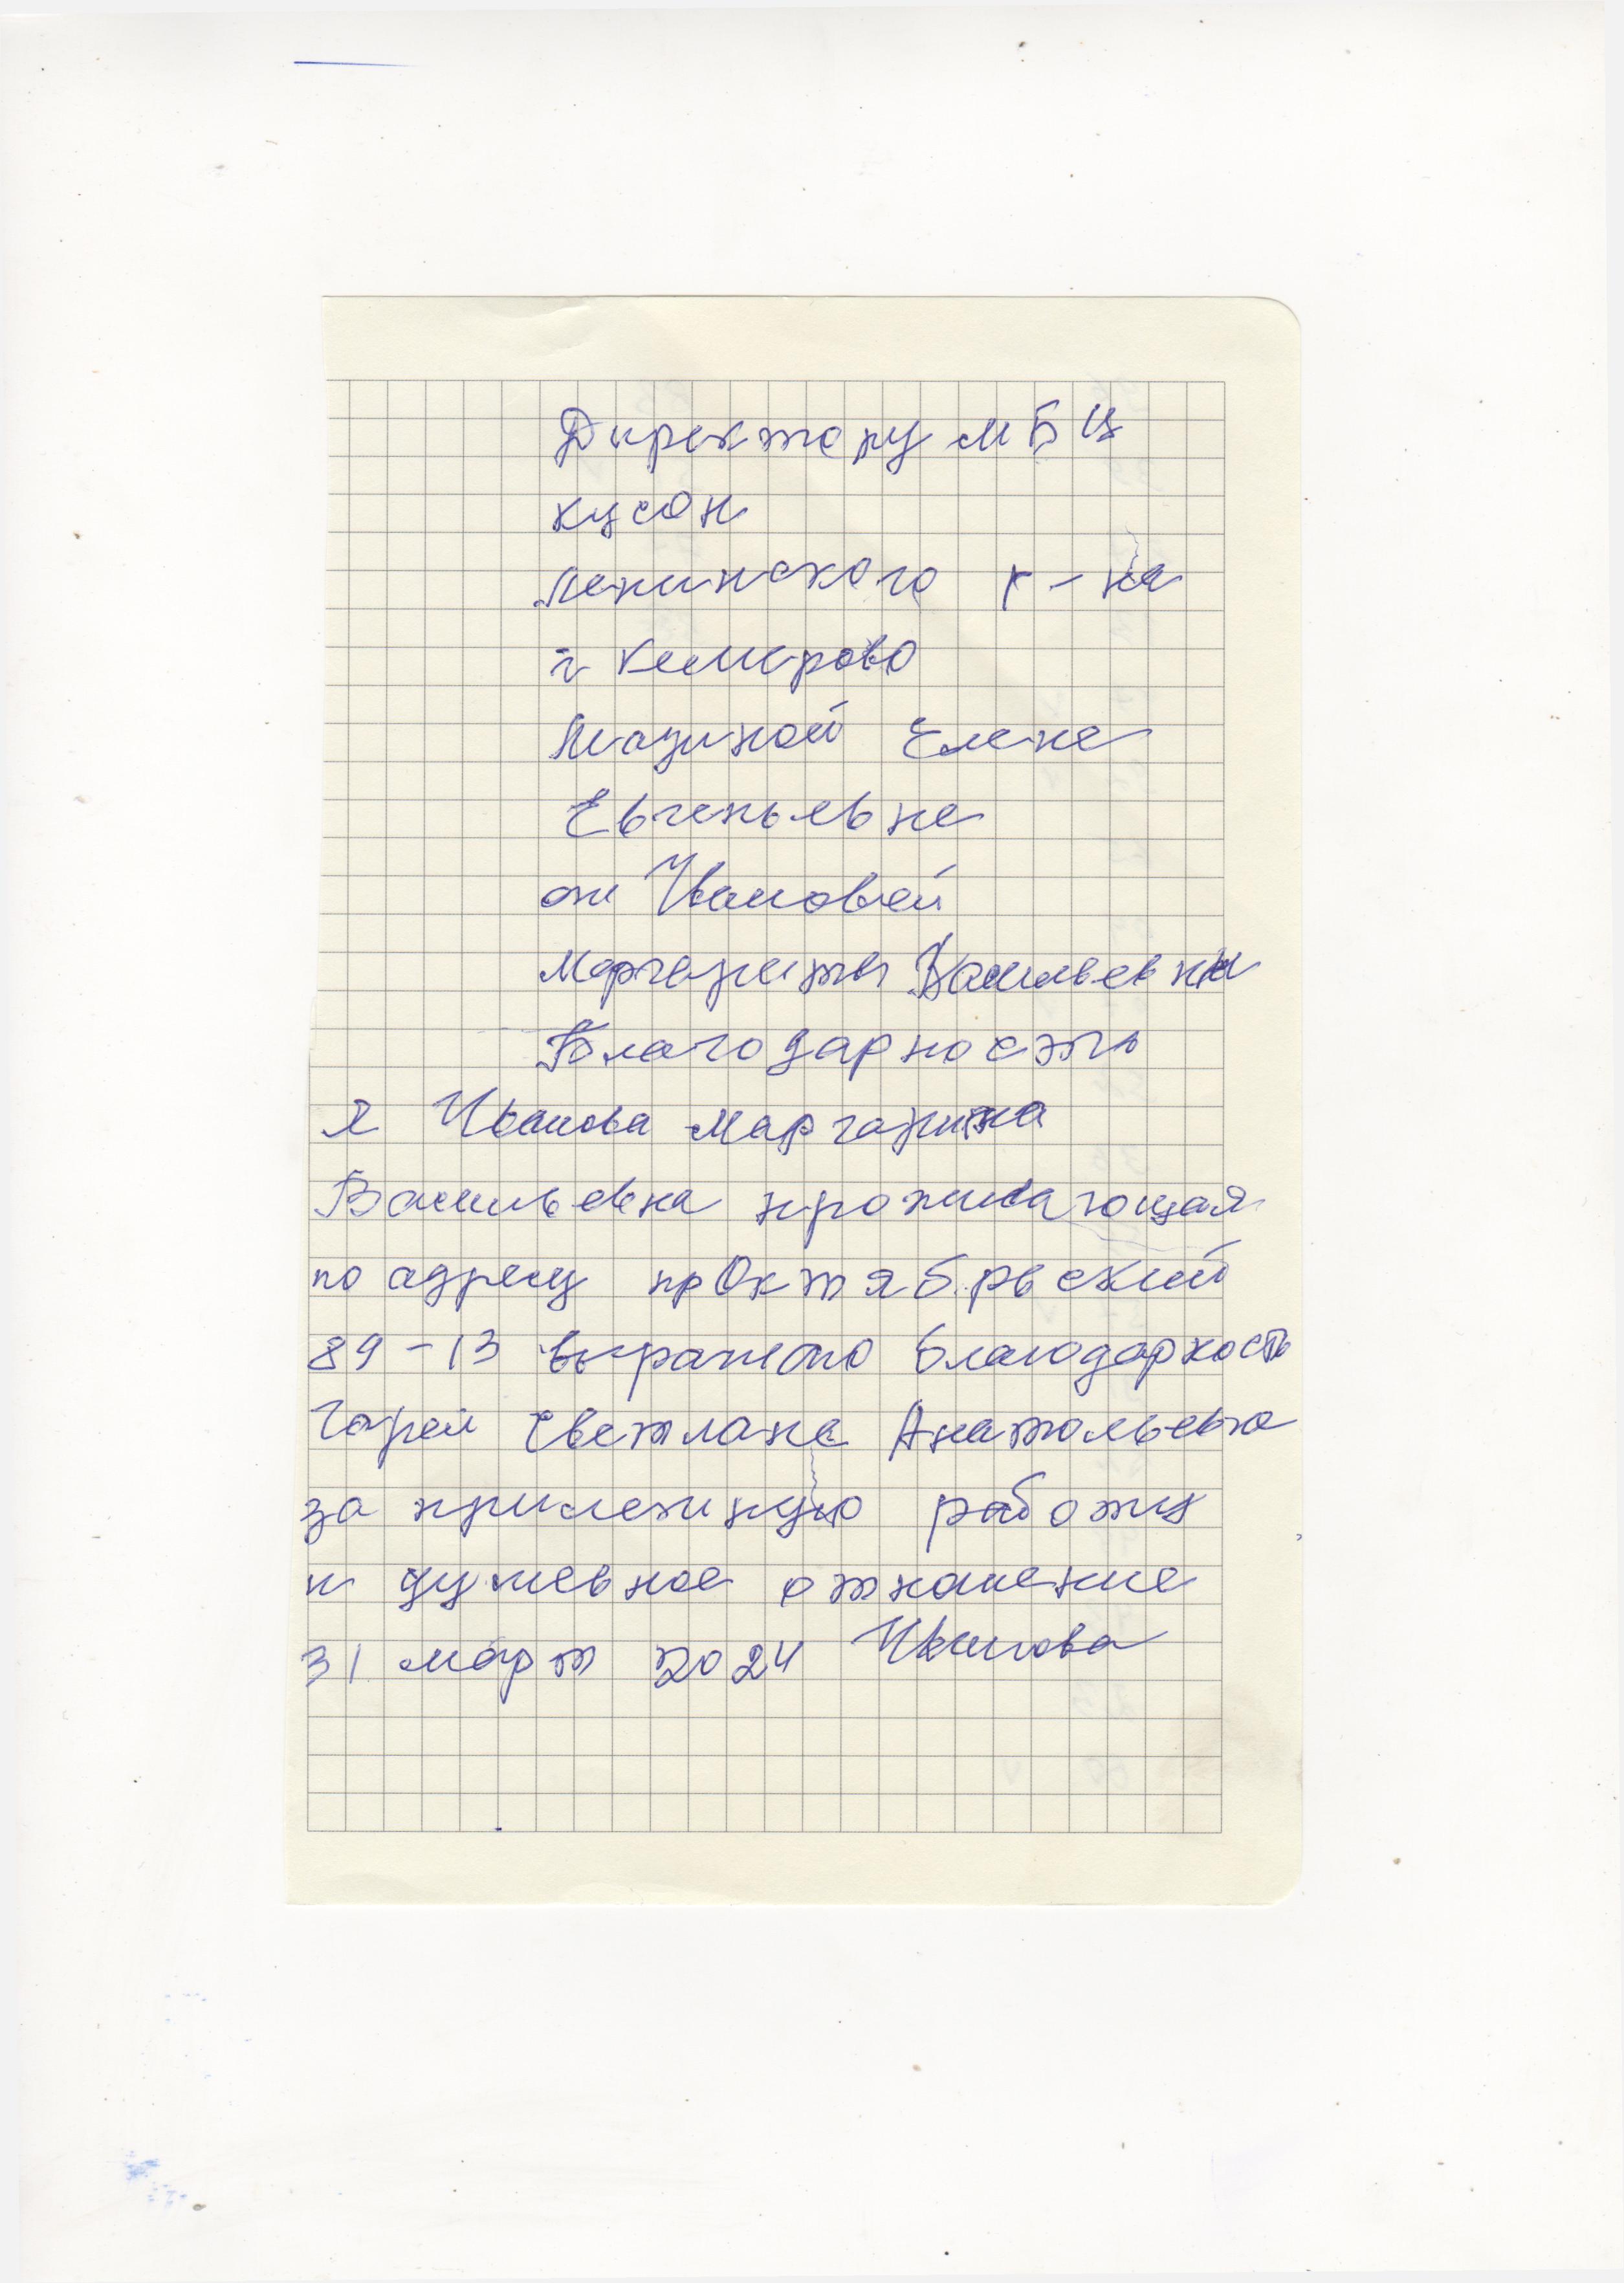 Директору МБЦ
КЦСОН
Ленинского р-на
г Кемерово
Елене
Евгеньевне
от Ивановой
Маргариты Васильевны
Благодарность
Я Иванова Маргарита
Васильевна проживающая
по адресу пр Октябрьский
89-13 выражаю благодарность
Светлане Анатольевне
за прилежную работу
и душевное отношение
31 март 2024 Иванова